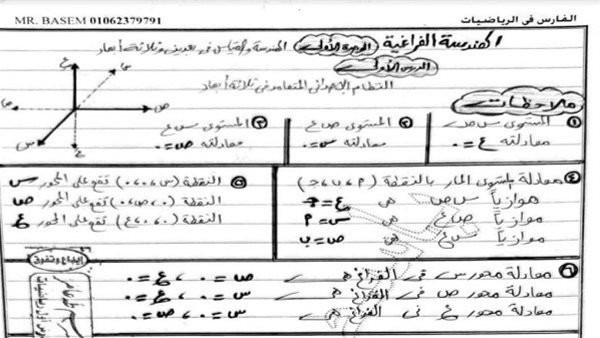 الفارس فى الرياضيات
MR. BASEM 01062379791
الهندسة الفراغية الوحدة الأولى الهندسة والقياس فى بعدين وثلاثة أبعاد
الدرس الأول
النظام الإحداثى المتعامد فى ثلاثة أبعاد
ع
س
ص
س
ص
ع
ملاحظات
١ المستوى س ص
معادلته ع = ٠
٢ المستوى ص ع
معادلته س = ٠
٣ المستوى س ع
معادلته ص = ٠
٤ معادلة المستوى المار بالنقطة (م، ب، جـ)
موازياً س ص هى ع = جـ
موازياً ص ع هى س = م
موازياً س ع هى ص = ب
٥ النقطة (س، ٠، ٠) تقع على المحور س
النقطة (٠، ص، ٠) تقع على المحور ص
النقطة (٠، ٠، ع) تقع على المحور ع
٦ معادلة محور س فى الفراغ هى ص = ٠، ع = ٠
معادلة محور ص فى الفراغ هى س = ٠، ع = ٠
معادلة محور ع فى الفراغ هى س = ٠، ص = ٠